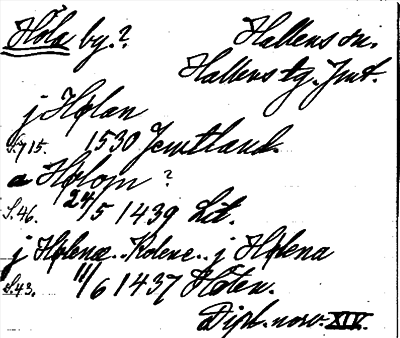 Höla by.? Hallens sn.
Hallens tg. Jmt.
j Hølan
S. 715. 1530 Jemtland.
a Hølom ?
S. 46. 24/5 1439 Lit.
j Hølenæ.. Kolene.. j Hølena
S. 43. 11/6 1437 Höten.
Dipl. norv. XIV.